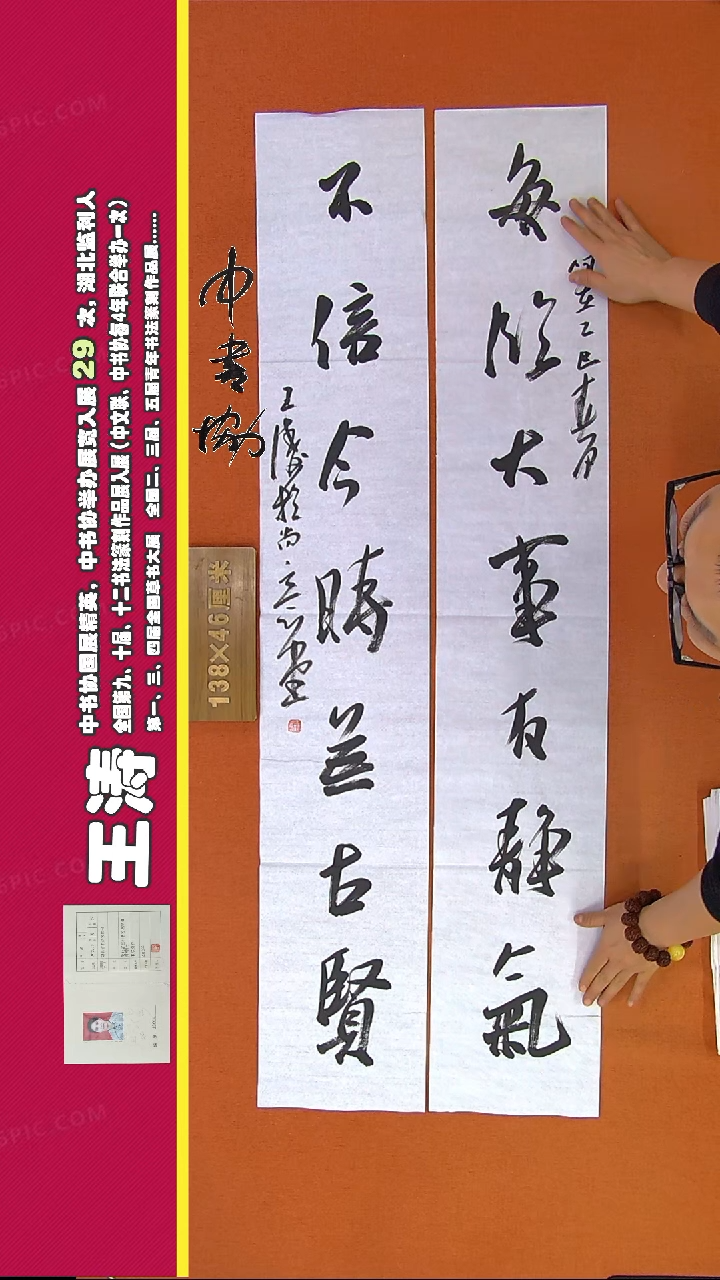 中书协国展精英，中书协举办展览入展 29 次，湖北监利人
全国第九、十届、十二书法篆刻作品展入展（中文联、中书协每4年联合举办一次）
第一、三、四届全国草书大展 全国二、三届、五届青年书法篆刻作品展……
王涛
中書協
138×46厘米
歲在乙巳春月
每臨大事有靜氣
不信今時無古賢
王濤於尚